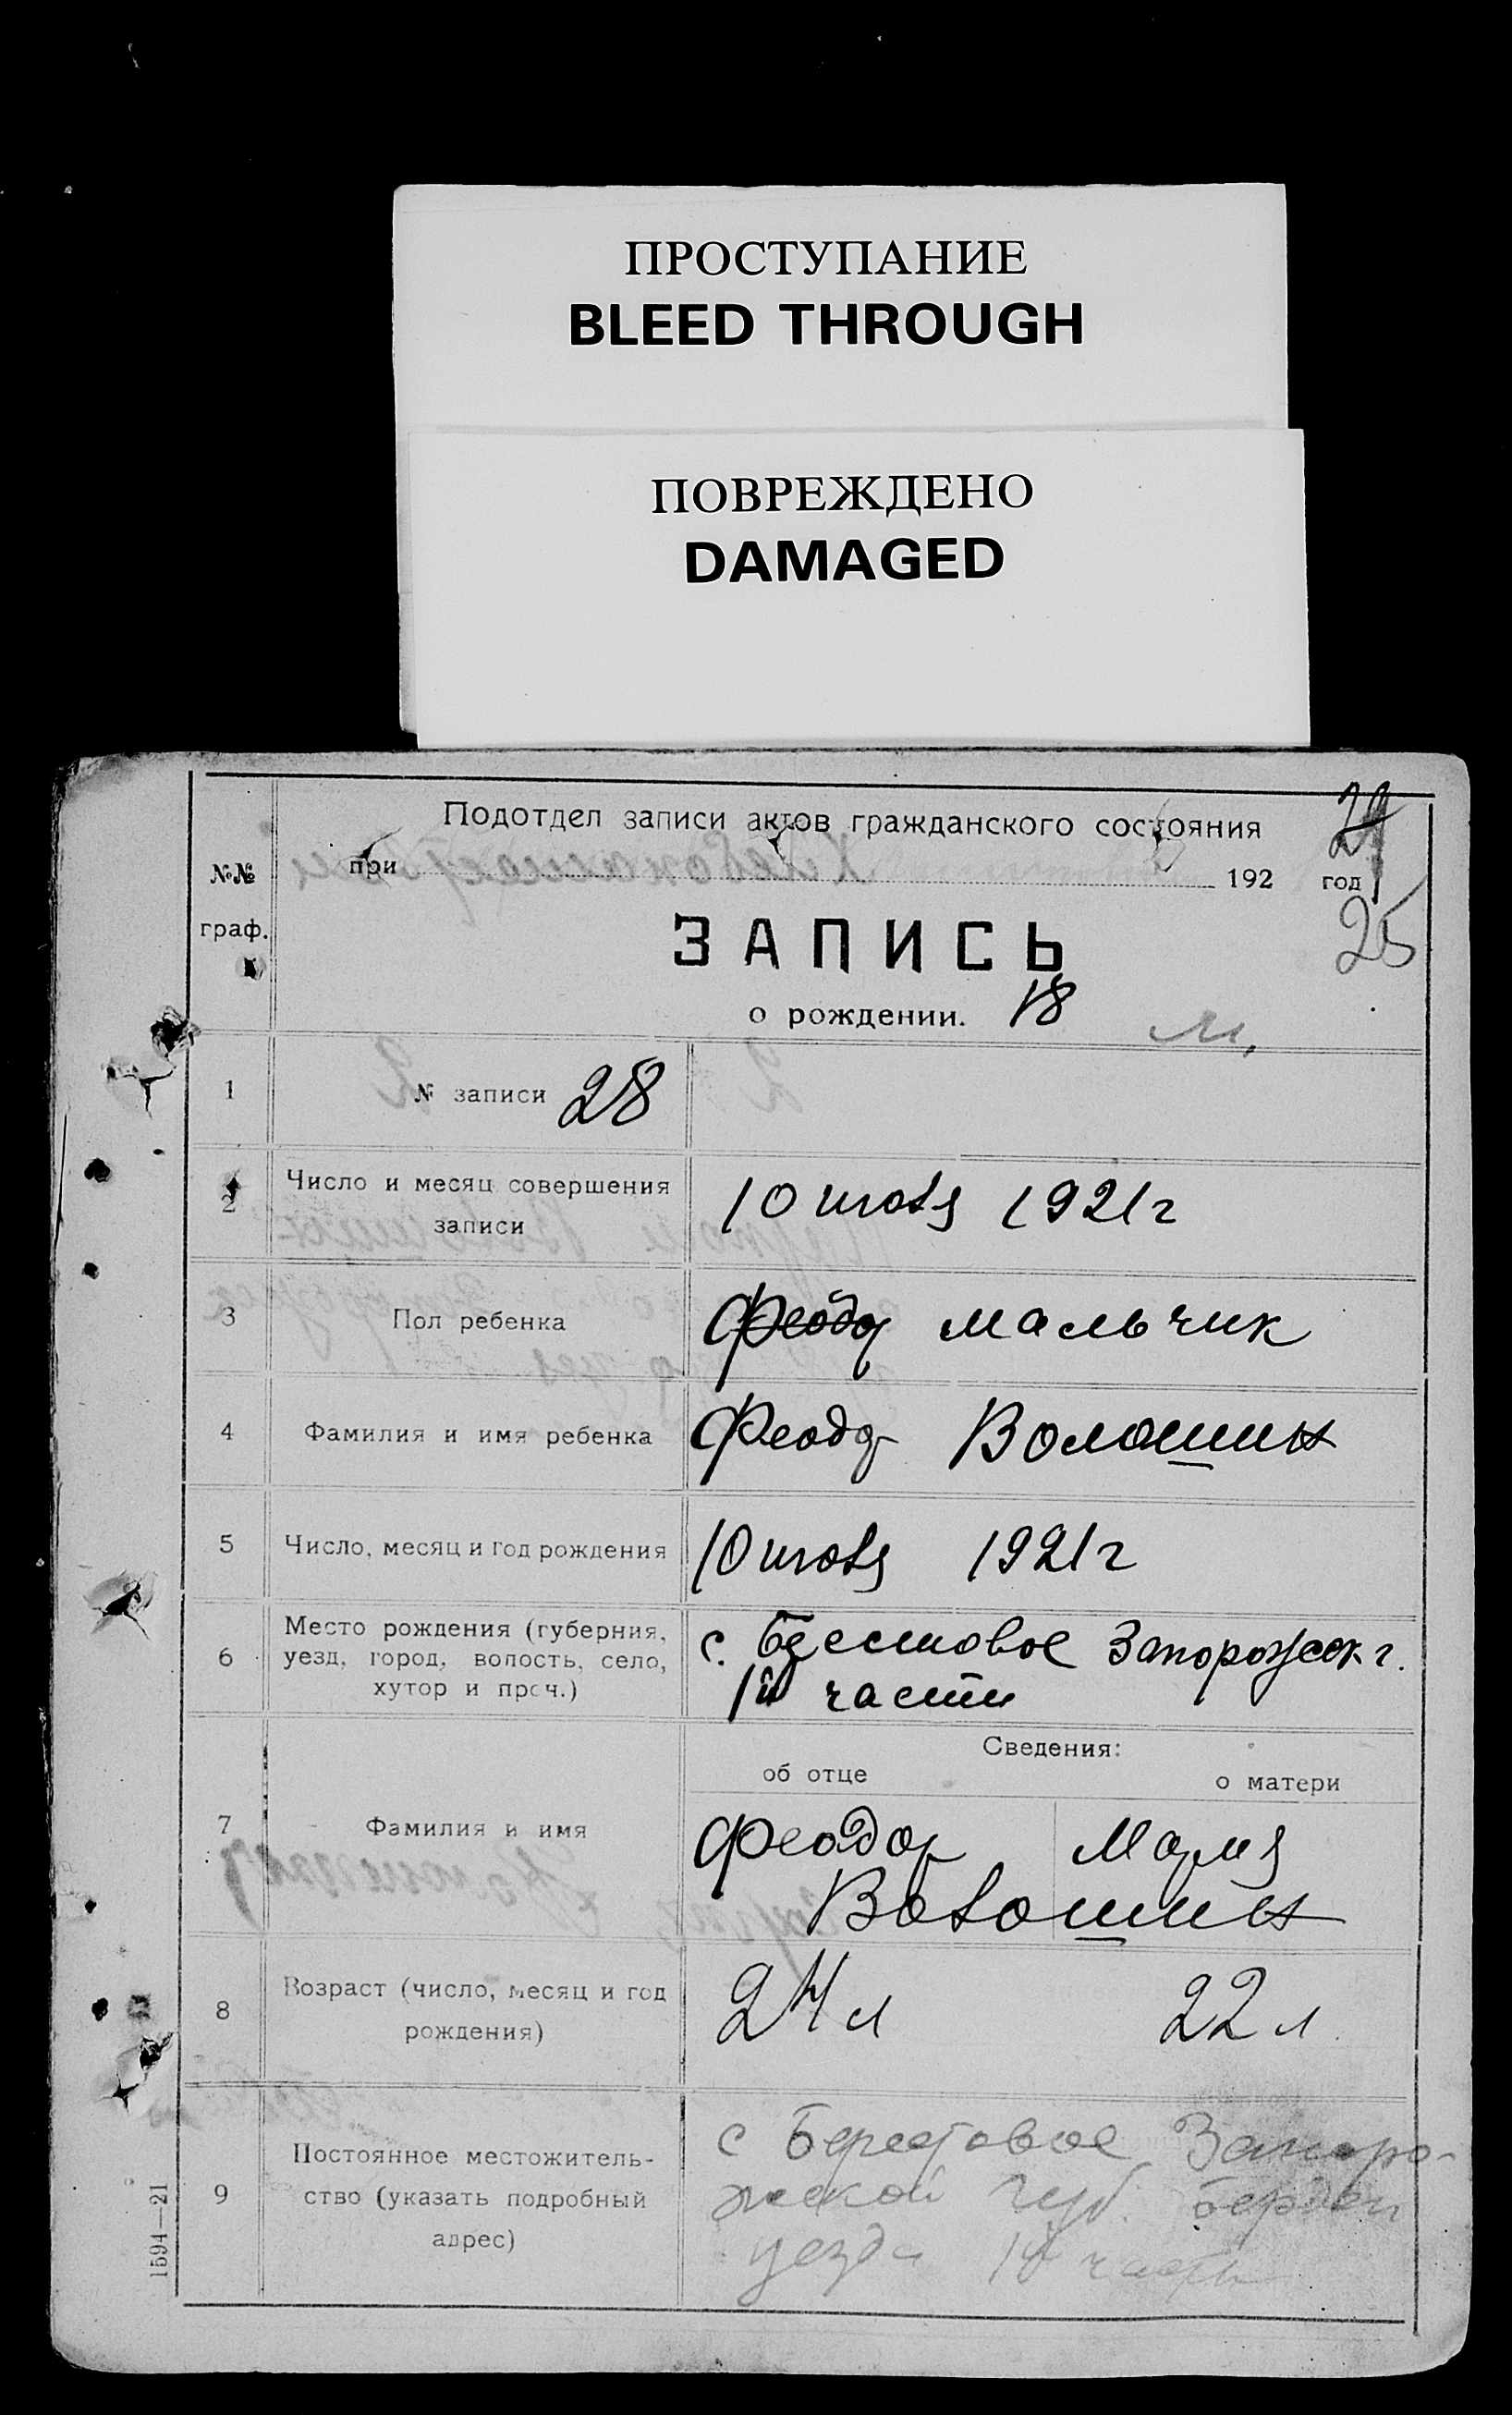 ПРОСТУПАНИЕ
BLEED THROUGH
ПОВРЕЖДЕНО
DAMAGED
Подотдел записи актов гражданского состояния
24
при 192 год
25
№№
граф.
ЗАПИСЬ
о рождении. 18 м,
1 № записи 28
2 Число и месяц совершения
записи
10 июля 1921 г
3 Пол ребенка Феодр мальчик
4 Фамилия и имя ребенка Феодр Волошин
5 Число, месяц и год рождения 10 июля 1921 г
6 Место рождения (губерния,
уезд, город, волость, село,
хутор и проч.)
с. Берестовое Запорожск г.
1й части
Сведения:
об отце о матери
7 Фамилия и имя Феодор Мария
Волошин
8 Возраст (число, месяц и год
рождения)
24 л 22 л
9 Постоянное местожитель-
ство (указать подробный
адрес)
с Берестовое Запоро-
жской губ. Бердян
уезда 1й часть
1594—21